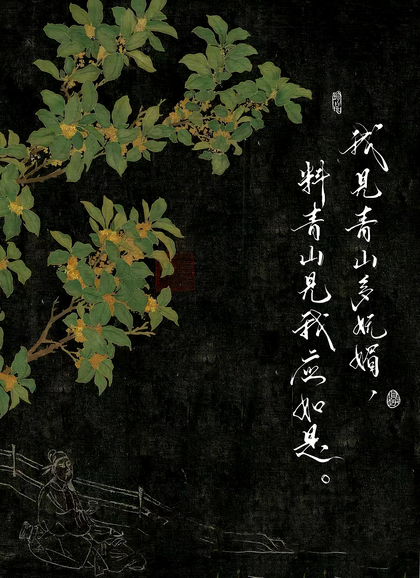 我見青山多妩媚，
料青山見我应如是。